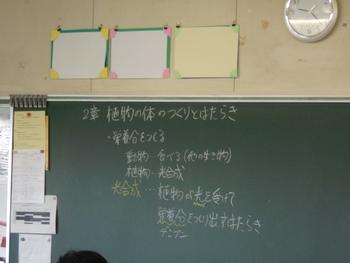 2章 植物の体のつくりとはたらき
・栄養分をつくる
動物…食べる(他の生き物)
植物…光合成
光合成…植物が光を受けて
栄養分をつくり出すはたらき
デンプン